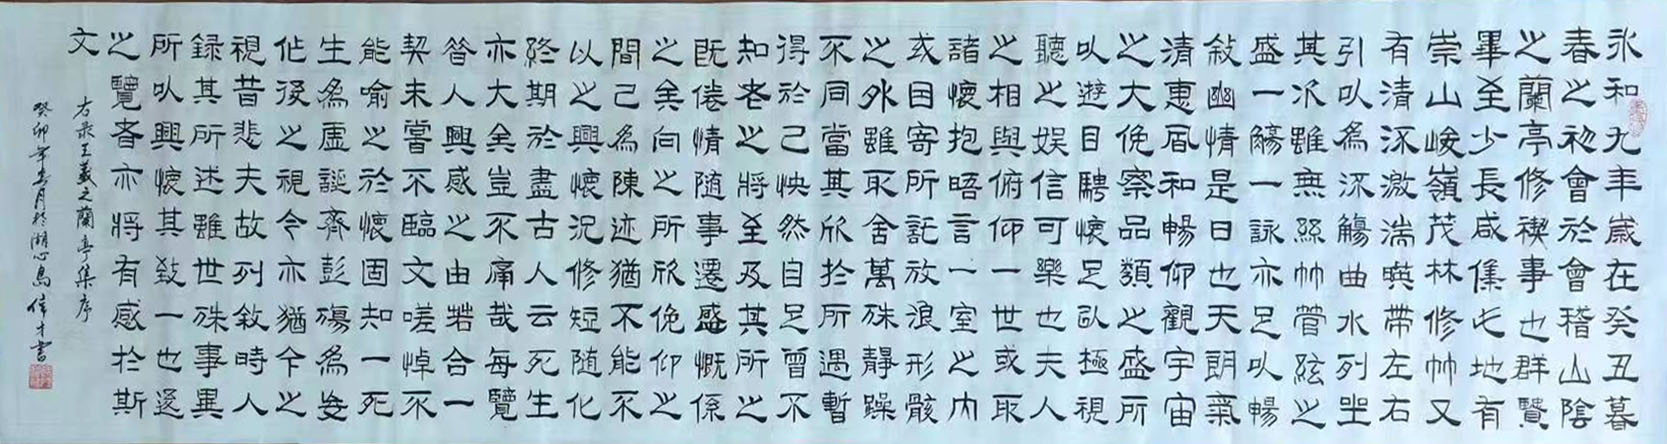 永和九年歲在癸丑暮
春之初會於會稽山陰
之蘭亭修禊事也群賢
畢至少長咸集此地有
崇山峻嶺茂林修竹又
有清流激湍暎帶左右
引以為流觴曲水列坐
其次雖無絲竹管絃之
盛一觴一詠亦足以暢
敘幽情是日也天朗氣
清惠風和暢仰觀宇宙
之大俛察品類之盛所
以遊目騁懷足以極視
聽之娛信可樂也夫人
之相與俯仰一世或取
諸懷抱晤言一室之內
或因寄所託放浪形骸
之外雖取舍萬殊靜躁
不同當其欣於所遇暫
得於己怏然自足曾不
知老之將至及其所之
既倦情隨事遷感慨係
之矣向之所欣俛仰之
間已為陳迹猶不能不
以之興懷況修短隨化
終期於盡古人云死生
亦大矣豈不痛哉每覽
昔人興感之由若合一
契未嘗不臨文嗟悼不
能喻之於懷固知一死
生為虛誕齊彭殤為妄
作後之視今亦猶今之
視昔悲夫故列敘時人
錄其所述雖世殊事異
所以興懷其致一也後
之覽者亦將有感於斯
文
右录王羲之蘭亭集序
癸卯年春月於湖心島偉才書